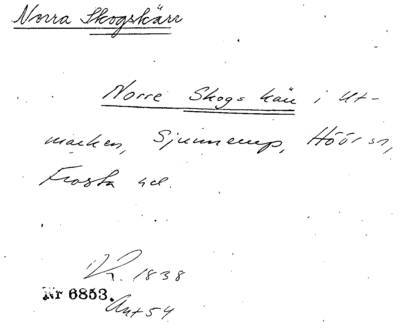 Norra Skogskärr
Norre Skogs kärr i Ut-
marken, Sjunnerup, Höör sn,
Frosta hd.
1838
Nr 6853.
Ant 54